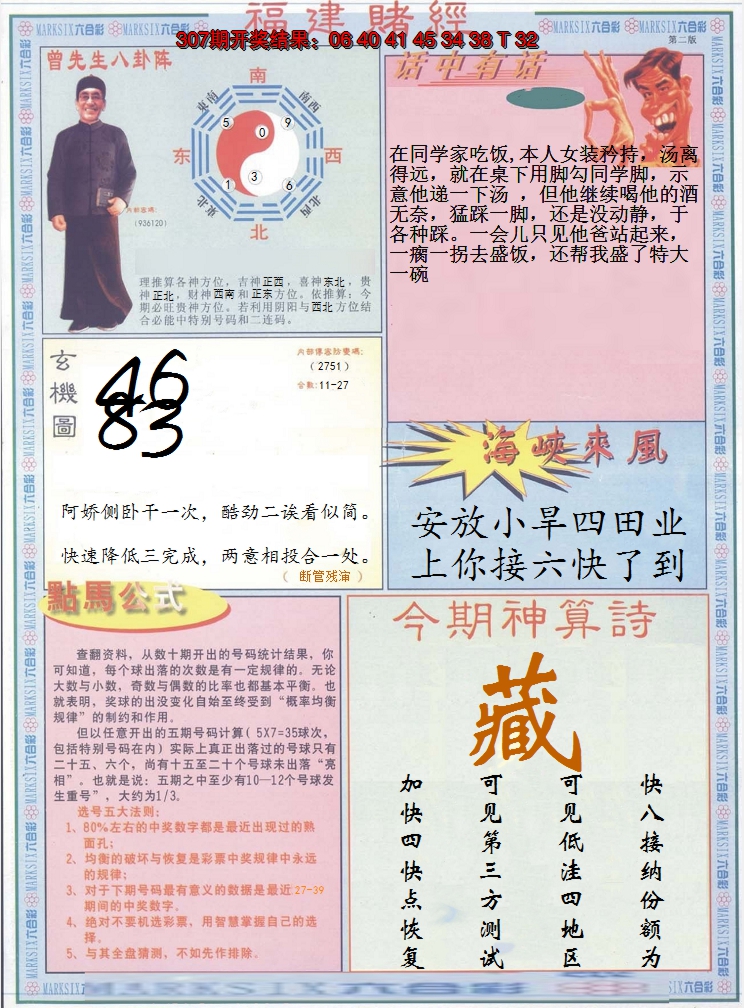 福建賭經
307期开奖结果：06 40 41 45 34 38 T 32
第二版
MARKSIX六合彩
曾先生八卦阵
南
东南
西南
东
西
东北
西北
北
5
0
9
1
3
6
内部密碼:
(936120)
理推算各神方位，吉神正西，喜神东北，贵
神正北，财神西南和正东方位。依推算：今
期必旺贵神方位。若利用阴阳与西北方位结
合必能中特别号码和二连码。
话中有话
在同学家吃饭,本人女装矜持，汤离
得远，就在桌下用脚勾同学脚，示
意他递一下汤 ，但他继续喝他的酒
无奈，猛踩一脚，还是没动静，于
各种踩。一会儿只见他爸站起来，
一瘸一拐去盛饭，还帮我盛了特大
一碗
玄機圖
46
83
（2751）
合数:11-27
阿娇侧卧干一次，酷劲二诶看似简。
快速降低三完成，两意相报合一处。
（ 断管残渖 ）
海峽來風
安放小旱四田业
上你接六快了到
點馬公式
查翻资料，从数十期开出的号码统计结果，你
可知道，每个球出落的次数是有一定规律的。无论
大数与小数，奇数与偶数的比率也都基本平衡。也
就表明，奖球的出没变化自始至终受到“概率均衡
规律”的制约和作用。
但以任意开出的五期号码计算( 5X7=35球次，
包括特别号码在内) 实际上真正出落过的号球只有
二十五、六个，尚有十五至二十个号球未出落“亮
相”。也就是说：五期之中至少有10—12个号球发
生重号”，大约为1/3。
选号五大法则:
1、80%左右的中奖数字都是最近出现过的熟
面孔;
2、均衡的破坏与恢复是彩票中奖规律中永远
的规律;
3、对于下期号码最有意义的数据是最近27-39
期间的中奖数字。
4、绝对不要机选彩票，用智慧掌握自己的选
择。
5、与其全盘猜测，不如先作排除。
今期神算詩
藏
快八接纳份额为
可见低洼四地区
可见第三方测试
加快四快点恢复